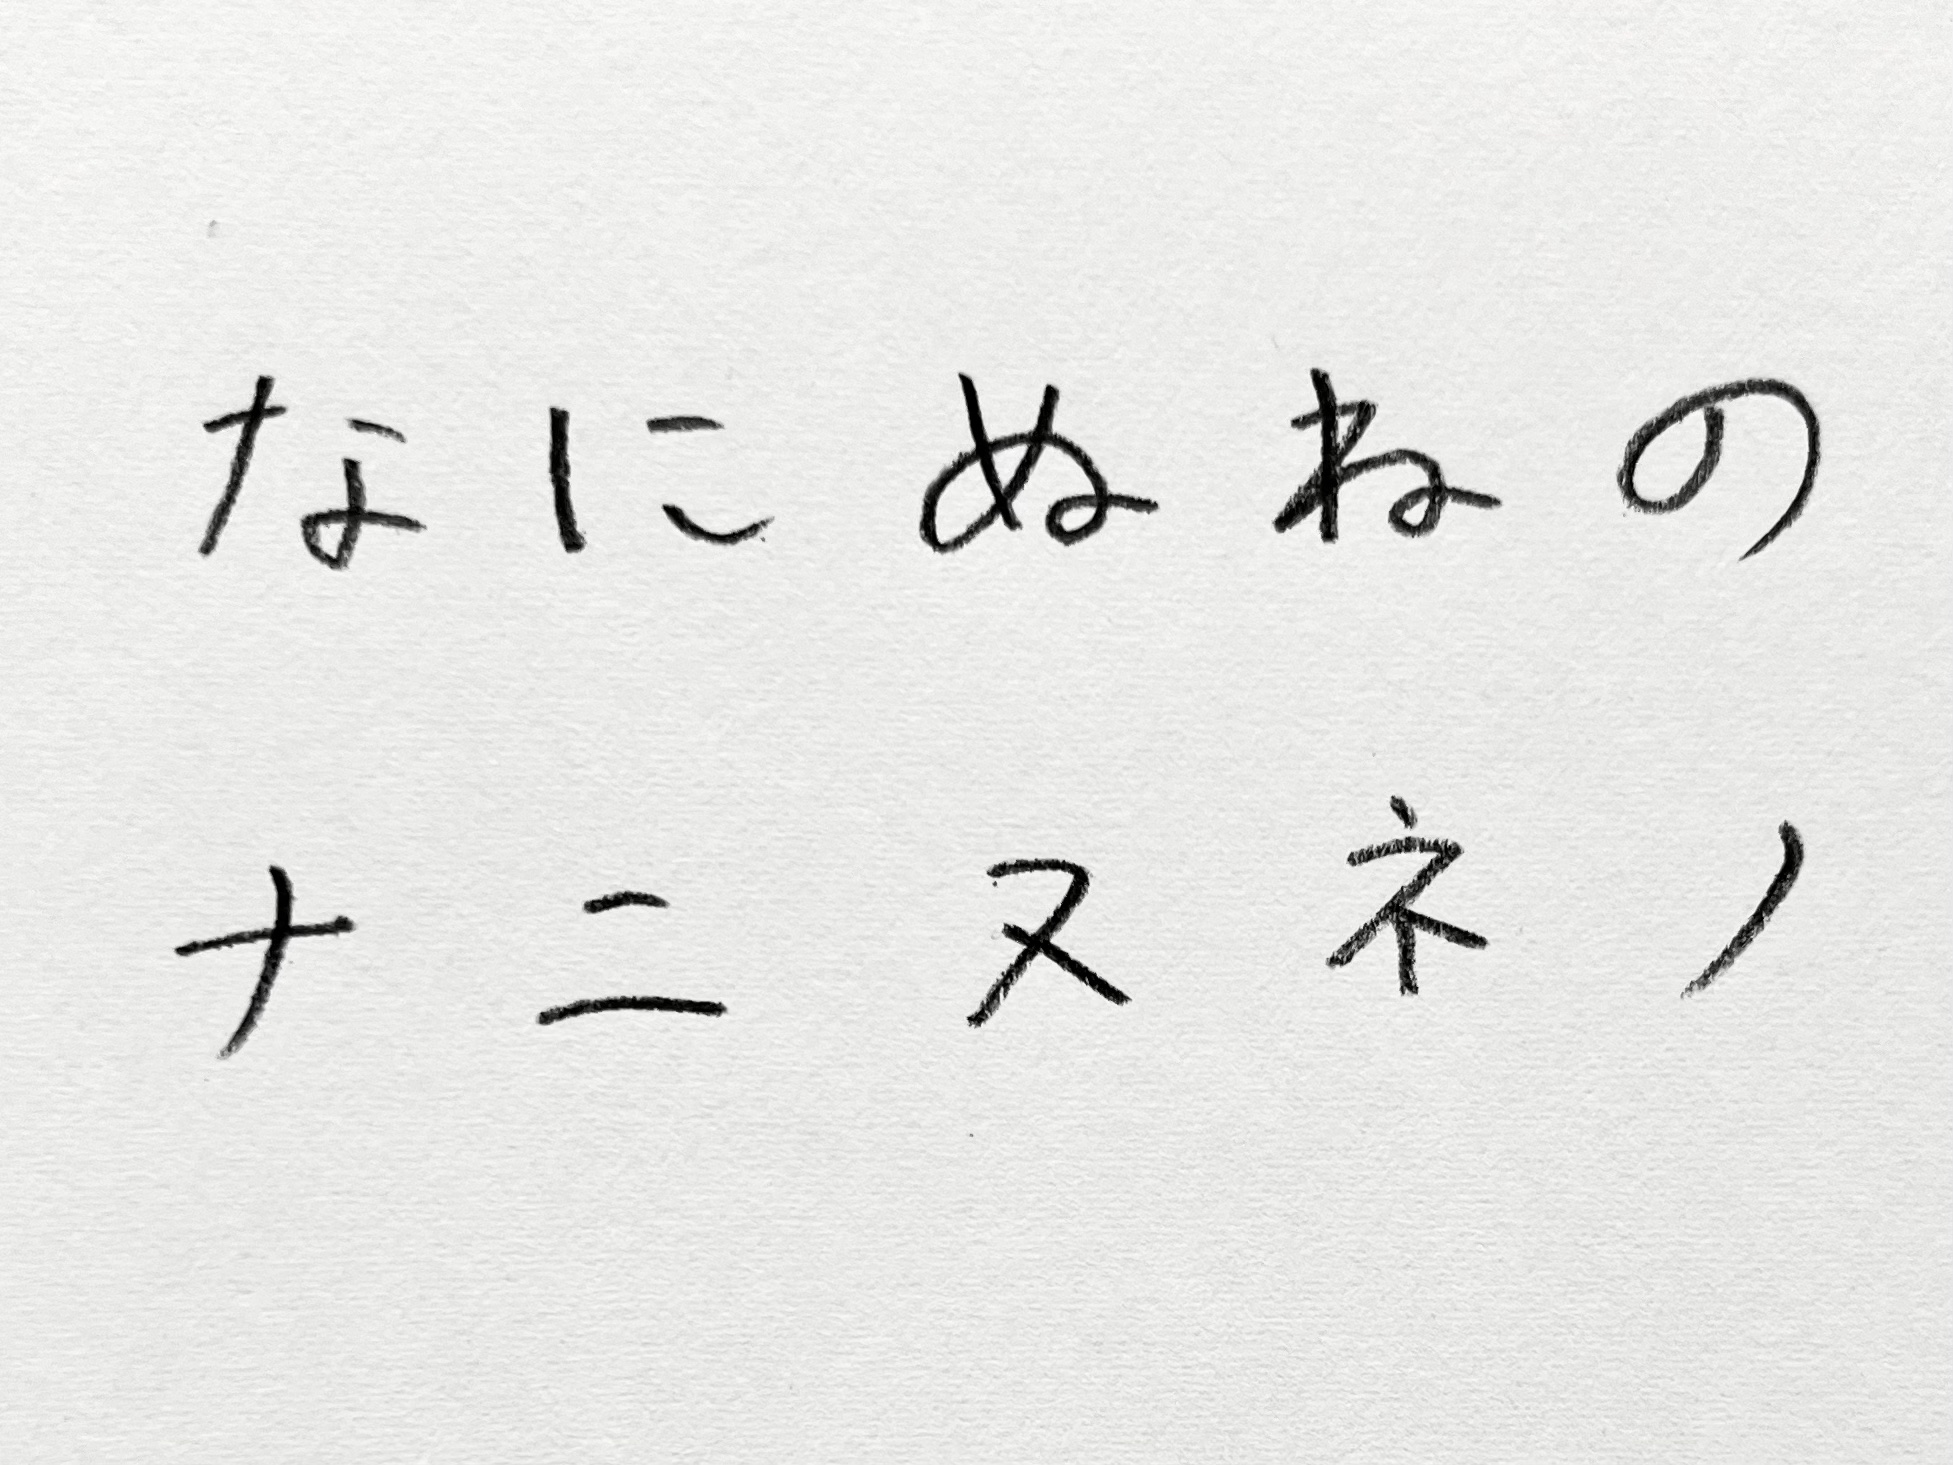 なにぬねの
ナニヌネノ